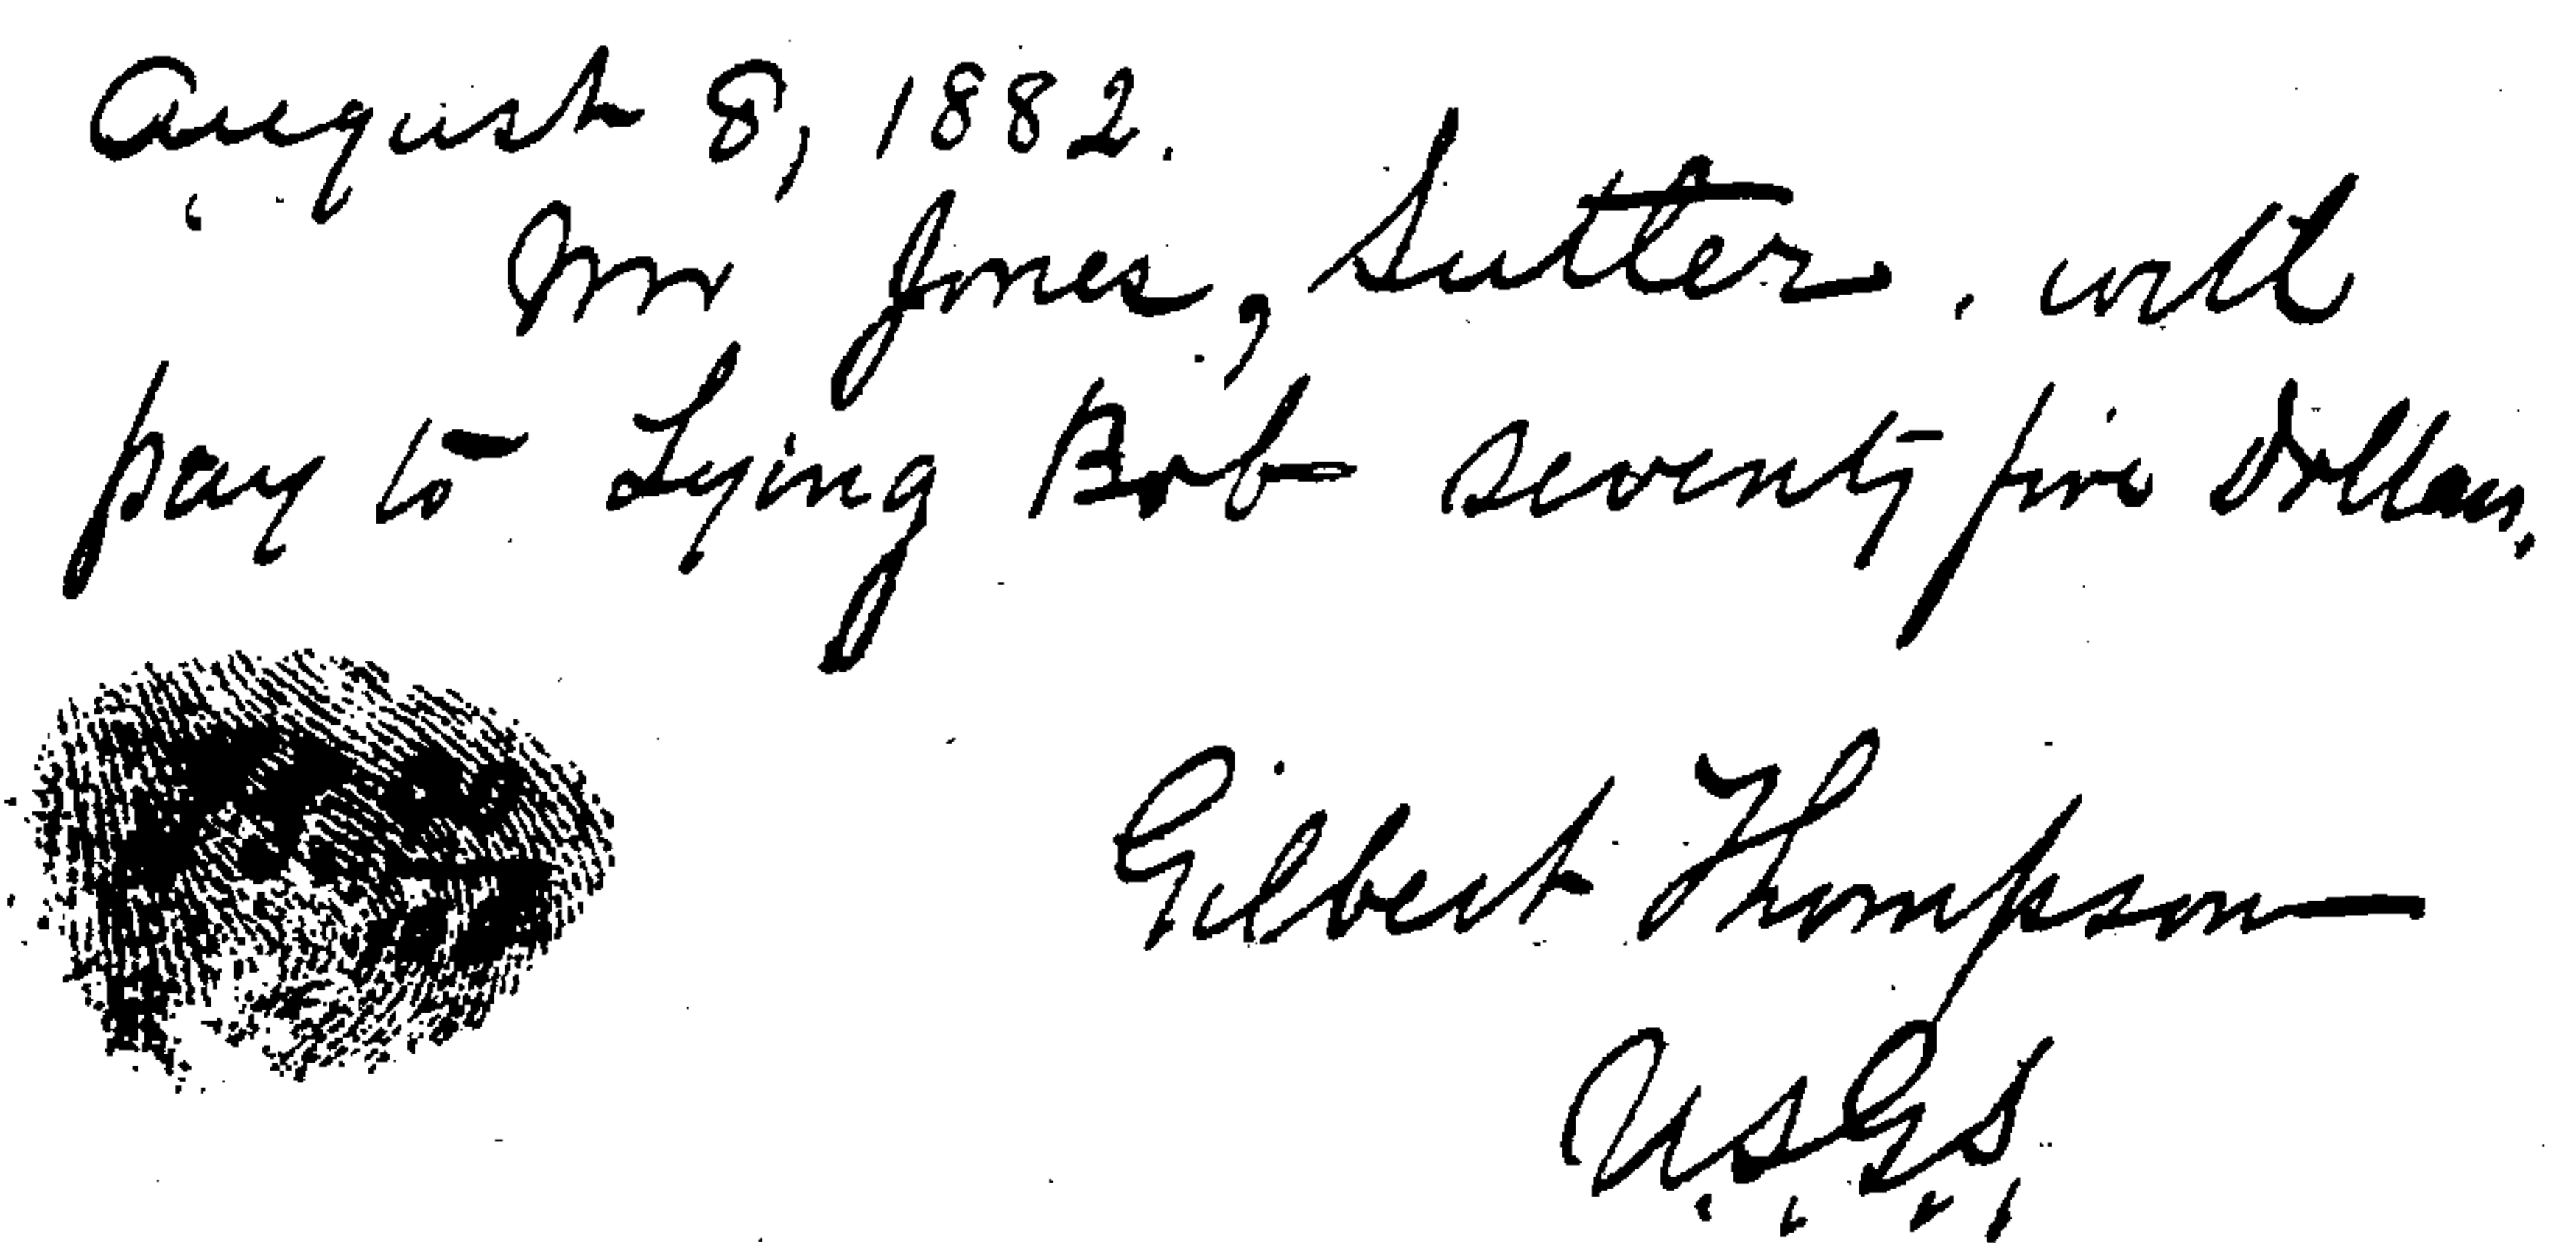 August 8, 1882.
Mr Jones, Sutler, will
pay to Lying Bob seventy five Dollars.
Gilbert Thompson
U.S.G.S.